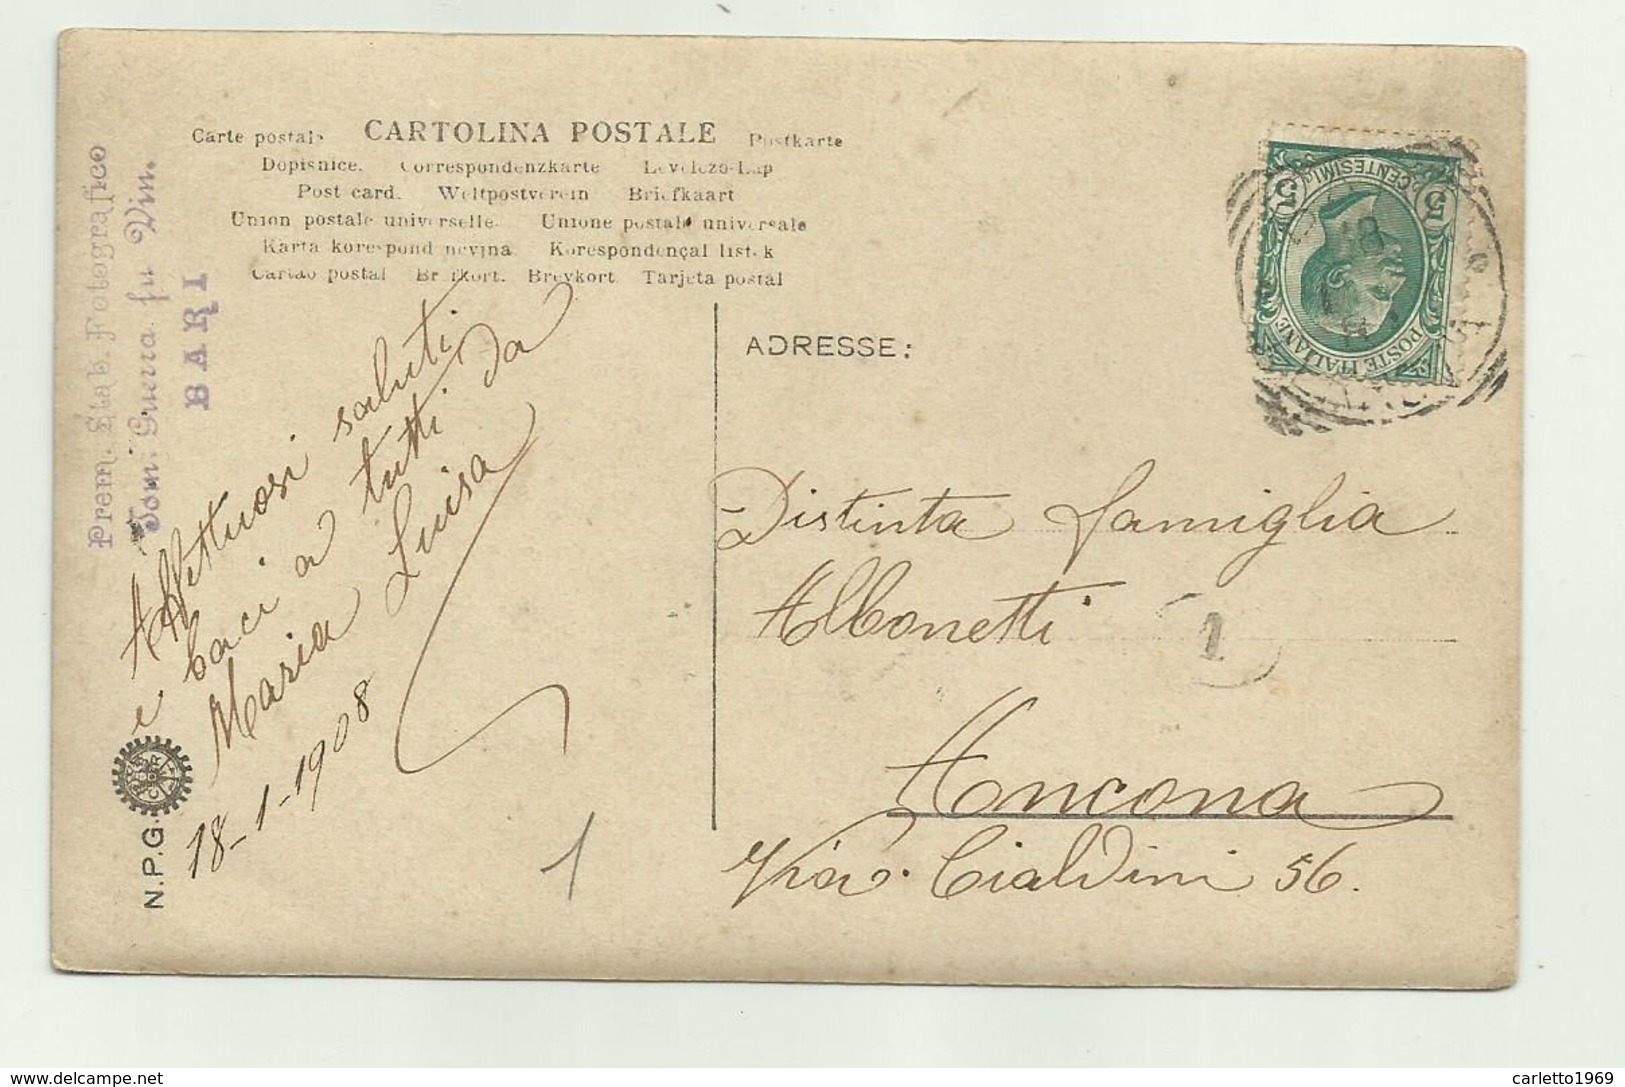 Carte postale CARTOLINA POSTALE Postkarte
Dopisnice. Correspondenzkarte Levelezo-Lap
Post card. Weltpostverein Briefkaart
Union postale universelle. Unione postale universale
Karta korespondencyjna Korespondençal listek
Cartao postal Brefkort. Brevkort Tarjeta postal
Prem. Stab. Fotografico
Tom. Guerra fu Vin.
BARI
Affettuosi saluti
e baci a tutti da
Maria Luisa
18-1-1908
N.P.G.
1
ADRESSE:
Distinta famiglia
Albonetti
1
Ancona
Via Cialdini 56.
5 CENTESIMI 5
POSTE ITALIANE
carletto1969